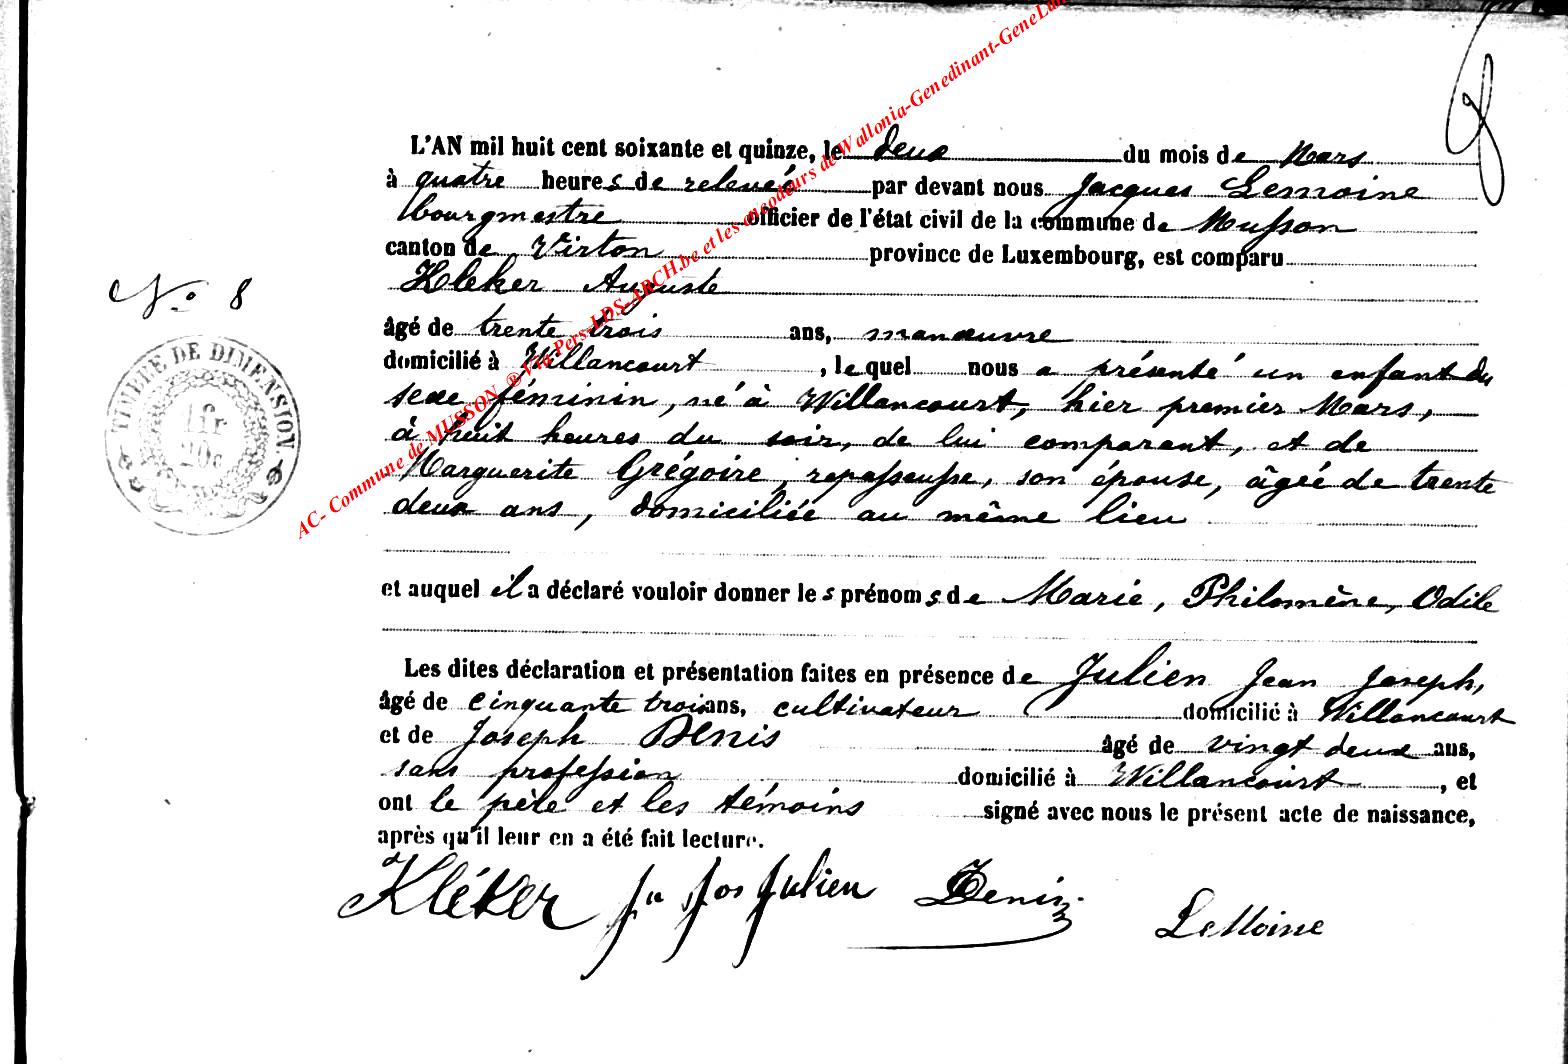 L'AN mil huit cent soixante et quinze, le deux du mois de Mars
à quatre heures de relevée par devant nous Jacques Lemoine
bourgmestre officier de l'état civil de la commune de Musson
canton de Virton province de Luxembourg, est comparu
Kléker Auguste
N° 8
âgé de trente trois ans, manœuvre
domicilié à Willancourt, lequel nous a présenté un enfant du
sexe féminin, né à Willancourt, hier premier Mars,
à huit heures du soir, de lui comparant, et de
Marguerite Grégoire, repasseusse, son épouse, âgée de trente
deux ans, domiciliée au même lieu
TIMBRE DE DIMENSION.
1fr
20c
et auquel il a déclaré vouloir donner les prénoms de Marie, Philomène, Odile
Les dites déclaration et présentation faites en présence de Julien Jean Joseph,
âgé de cinquante trois ans, cultivateur domicilié à Willancourt
et de Joseph Denis âgé de vingt deux ans,
sans profession domicilié à Willancourt, et
ont le père et les témoins signé avec nous le présent acte de naissance,
après qu'il leur en a été fait lecture.
Kléker Jn Jos Julien Denis
LeMoine
AC- Commune de MUSSON ® Via Pers-LDS-ARCH.be et les encodeurs de Wallonia-Genedinant-GeneLux